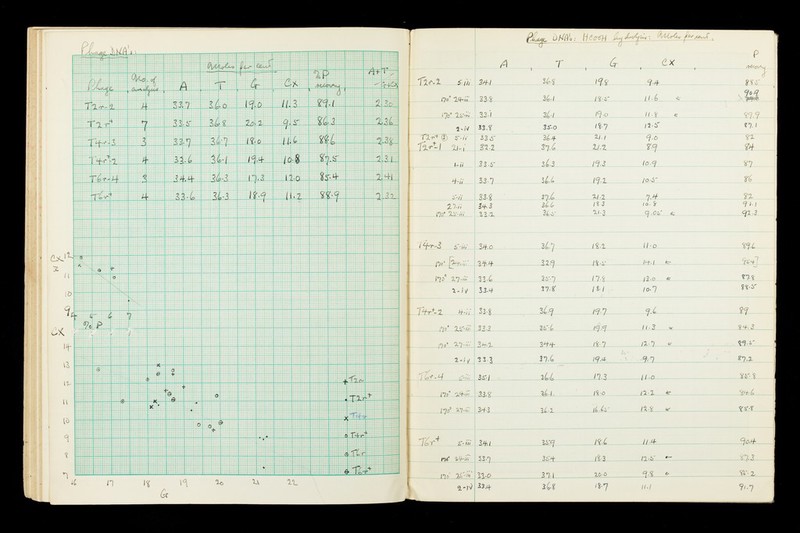 Phage DNA's.
Moles per cent
Phage No. of analyses A T G Cx %P recovery A+T
T2r-2 4 33.7 36.0 19.0 11.3 89.1 2.30
T2r+ 7 33.5 36.8 20.2 9.5 86.3 2.36
T4r-3 3 33.7 36.7 18.0 11.6 88.6 2.38
T4r+2 4 33.6 36.1 19.4 10.8 87.5 2.31
T6r-4 3 34.4 36.3 17.3 12.0 85.4 2.41
T6r+ 4 33.6 36.3 18.9 11.2 88.9 2.32
Cx 12
11
10
9
4 5 6 7
% P
Cx
14
13
12
11
10
9
8
7
T2r
T2r+
T4r
T4r+
T6r
T6r+
16 17 18 19 20 21 22
G
Phage DNA's: HCOOH hydrolysis: Moles per cent.
A T G CX P recovery
T2r-2 5-iii 34.1 36.8 19.8 9.4 88.5
170° 24-iii 33.8 36.1 18.5 11.6 90.9
170° 25-iii 33.1 36.1 19.0 11.8 87.9
2-iv 33.8 35.0 18.7 12.5 87.1
33.5 36.4 21.1 9.0 82
T2r+1 21-i 32.2 37.6 21.2 8.9 84
1-ii 33.5 36.3 19.3 10.9 87
4-ii 33.7 36.6 19.2 10.5 86
33.8 37.6 21.2 7.4 82
34.3 36.6 18.3 91.1
33.2 36.5 21.3 9.05 92.3
T4r-3 5-iii 34.0 36.7 18.2 11.0 89.6
170° 34.4 32.9 18.5 14.1
170° 27-iii 33.6 35.7 17.8 12.0 87.8
2-iv 33.4 37.8 18.1 10.7 88.5
T4r+2 4-iii 33.8 36.9 19.7 9.6 89
170° 25-iii 33.3 35.6 19.9 11.2 84.2
170° 27-iii 34.2 34.4 18.7 12.7 89.5
2-iv 33.3 37.6 19.4 9.7 87.2
T6r-4 35.1 36.6 17.3 11.0 85.8
170° 24-iii 33.8 36.1 18.0 12.2 84.6
170° 27-iii 34.3 36.2 16.65 12.8 85.8
T6r+ 5-iii 34.1 35.9 18.6 11.4 90.4
170° 24-iii 33.7 35.4 18.3 12.5 87.3
170° 25-iii 33.0 37.1 20.0 9.8 85.2
2-iv 33.4 36.8 18.7 11.1 91.7